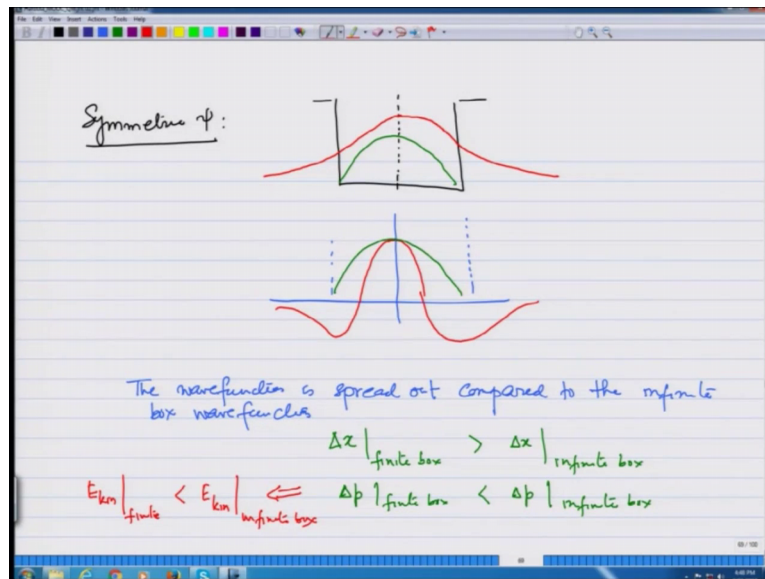 File Edit View Insert Actions Tools Help
Symmetric ψ:
The wavefunction is spread out compared to the infinite
box wavefunction
Δx|finite box > Δx|infinite box
Ekin|finite < Ekin|infinite box ⇐ Δp|finite box < Δp|infinite box
4:48 PM